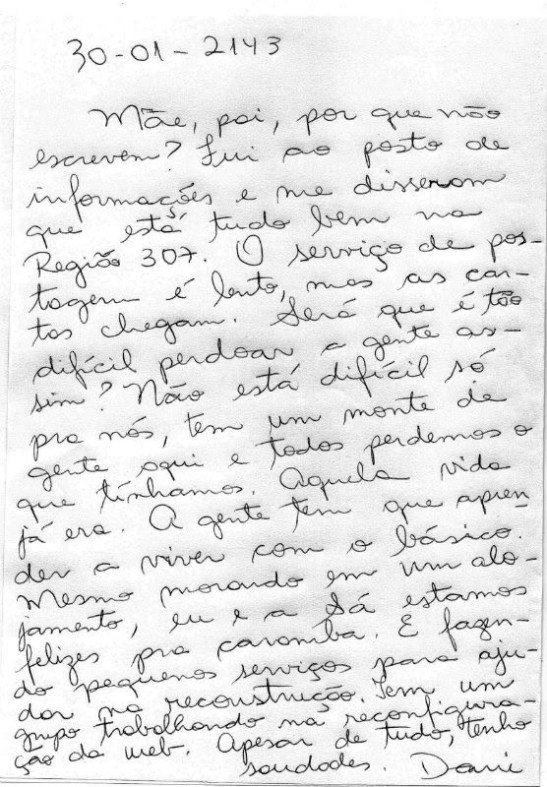 30-01-2143
Mãe, pai, por que não
escrevem? Fui ao posto de
informações e me disseram
que está tudo bem na
Região 307. O serviço de pos-
tagem é lento, mas as car-
tas chegam. Será que é tão
difícil perdoar a gente as-
sim? Não está difícil só
pra nós, tem um monte de
gente aqui e todos perdemos o
que tínhamos. Aquela vida
já era. A gente tem que apren
der a viver com o básico.
Mesmo morando em um alo-
jamento, eu e a Sá estamos
felizes pra caramba. E fazen-
do pequenos serviços para aju-
dar na reconstrucão. Tem um
grupo trabalhando na reconfigura-
ção da web. Apesar de tudo, tenho
saudades. Dani